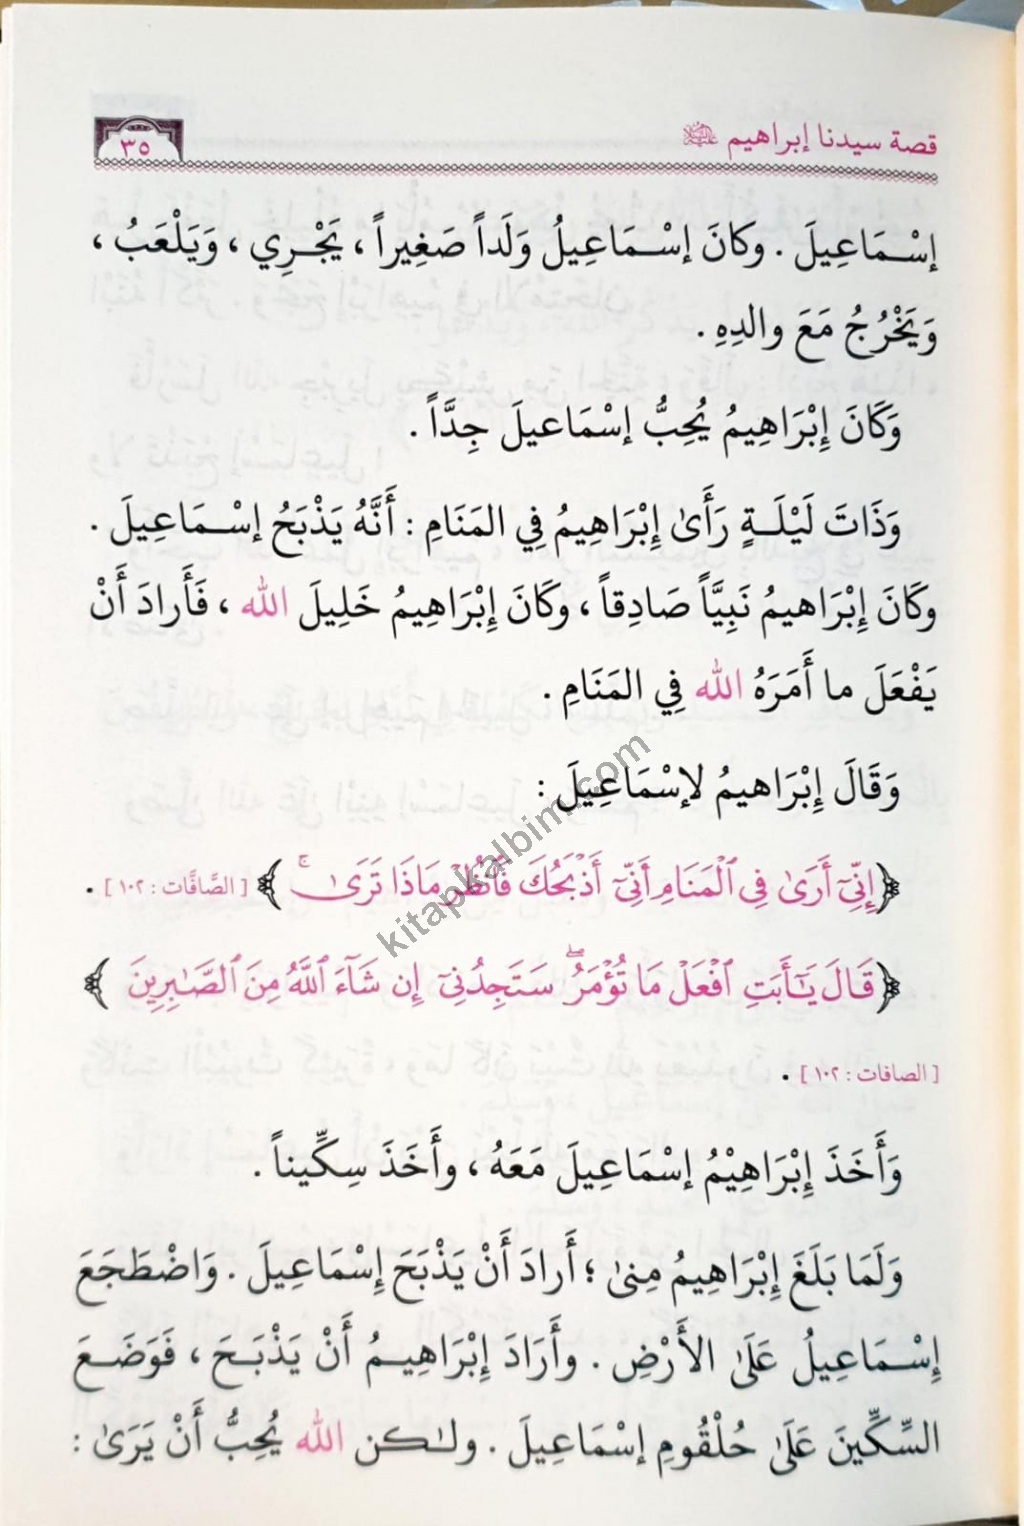 قصة سيدنا إبراهيم عليه السلام
٣٥
إسْـمَاعِيلَ . وكانَ إسْـمَاعِيلُ وَلَداً صَغِيراً ، يَجْـرِي ، وَيَلْعَبُ ،
وَيَخْرُجُ مَعَ والدِهِ .
وَكَانَ إِبْرَاهِيمُ يُحِبُّ إسْمَاعيلَ جِدَّاً .
وَذَاتَ لَيْلَـةٍ رَأَىٰ إِبْرَاهِيمُ فِي المَنَامِ : أَنَّهُ يَذْبَحُ إسْـمَاعِيلَ .
وكَانَ إِبْرَاهيمُ نَبِيَّاً صَادِقاً ، وكَانَ إِبْرَاهِيمُ خَلِيلَ الله ، فَأَرادَ أَنْ
يَفْعَلَ ما أَمَرَهُ الله فِي المَنَامِ .
وَقَالَ إِبْرَاهيمُ لإسْمَاعِيلَ :
﴿ إِنِّيٓ أَرَىٰ فِي ٱلْمَنَامِ أَنِّيٓ أَذْبَحُكَ فَٱنظُرْ مَاذَا تَرَىٰ ۚ ﴾ [ الصَّافَّات : ١٠٢ ] .
﴿ قَالَ يَـٰٓأَبَتِ ٱفْعَلْ مَا تُؤْمَرُ ۖ سَتَجِدُنِيٓ إِن شَآءَ ٱللَّهُ مِنَ ٱلصَّـٰبِرِينَ ﴾
[ الصافات : ١٠٢ ] .
وَأَخَذَ إِبْرَاهِيْمُ إسْمَاعِيلَ مَعَهُ ، وأَخَذَ سِكِّيناً .
وَلَمَا بَلَغَ إِبْرَاهِيمُ مِنىٰ ؛ أَرادَ أَنْ يَذْبَحَ إِسْمَاعِيلَ . وَاضْطَجَعَ
إِسْـمَاعِيلُ عَلَىٰ الأَرْضِ . وأَرَادَ إِبْرَاهِيـمُ أَنْ يَذْبَـحَ ، فَوَضَـعَ
السِّكِّينَ عَلَىٰ حُلْقُومِ إسْمَاعِيلَ . ولـٰكن الله يُحِبُّ أَنْ يَرَىٰ :
kitapkalbim.com